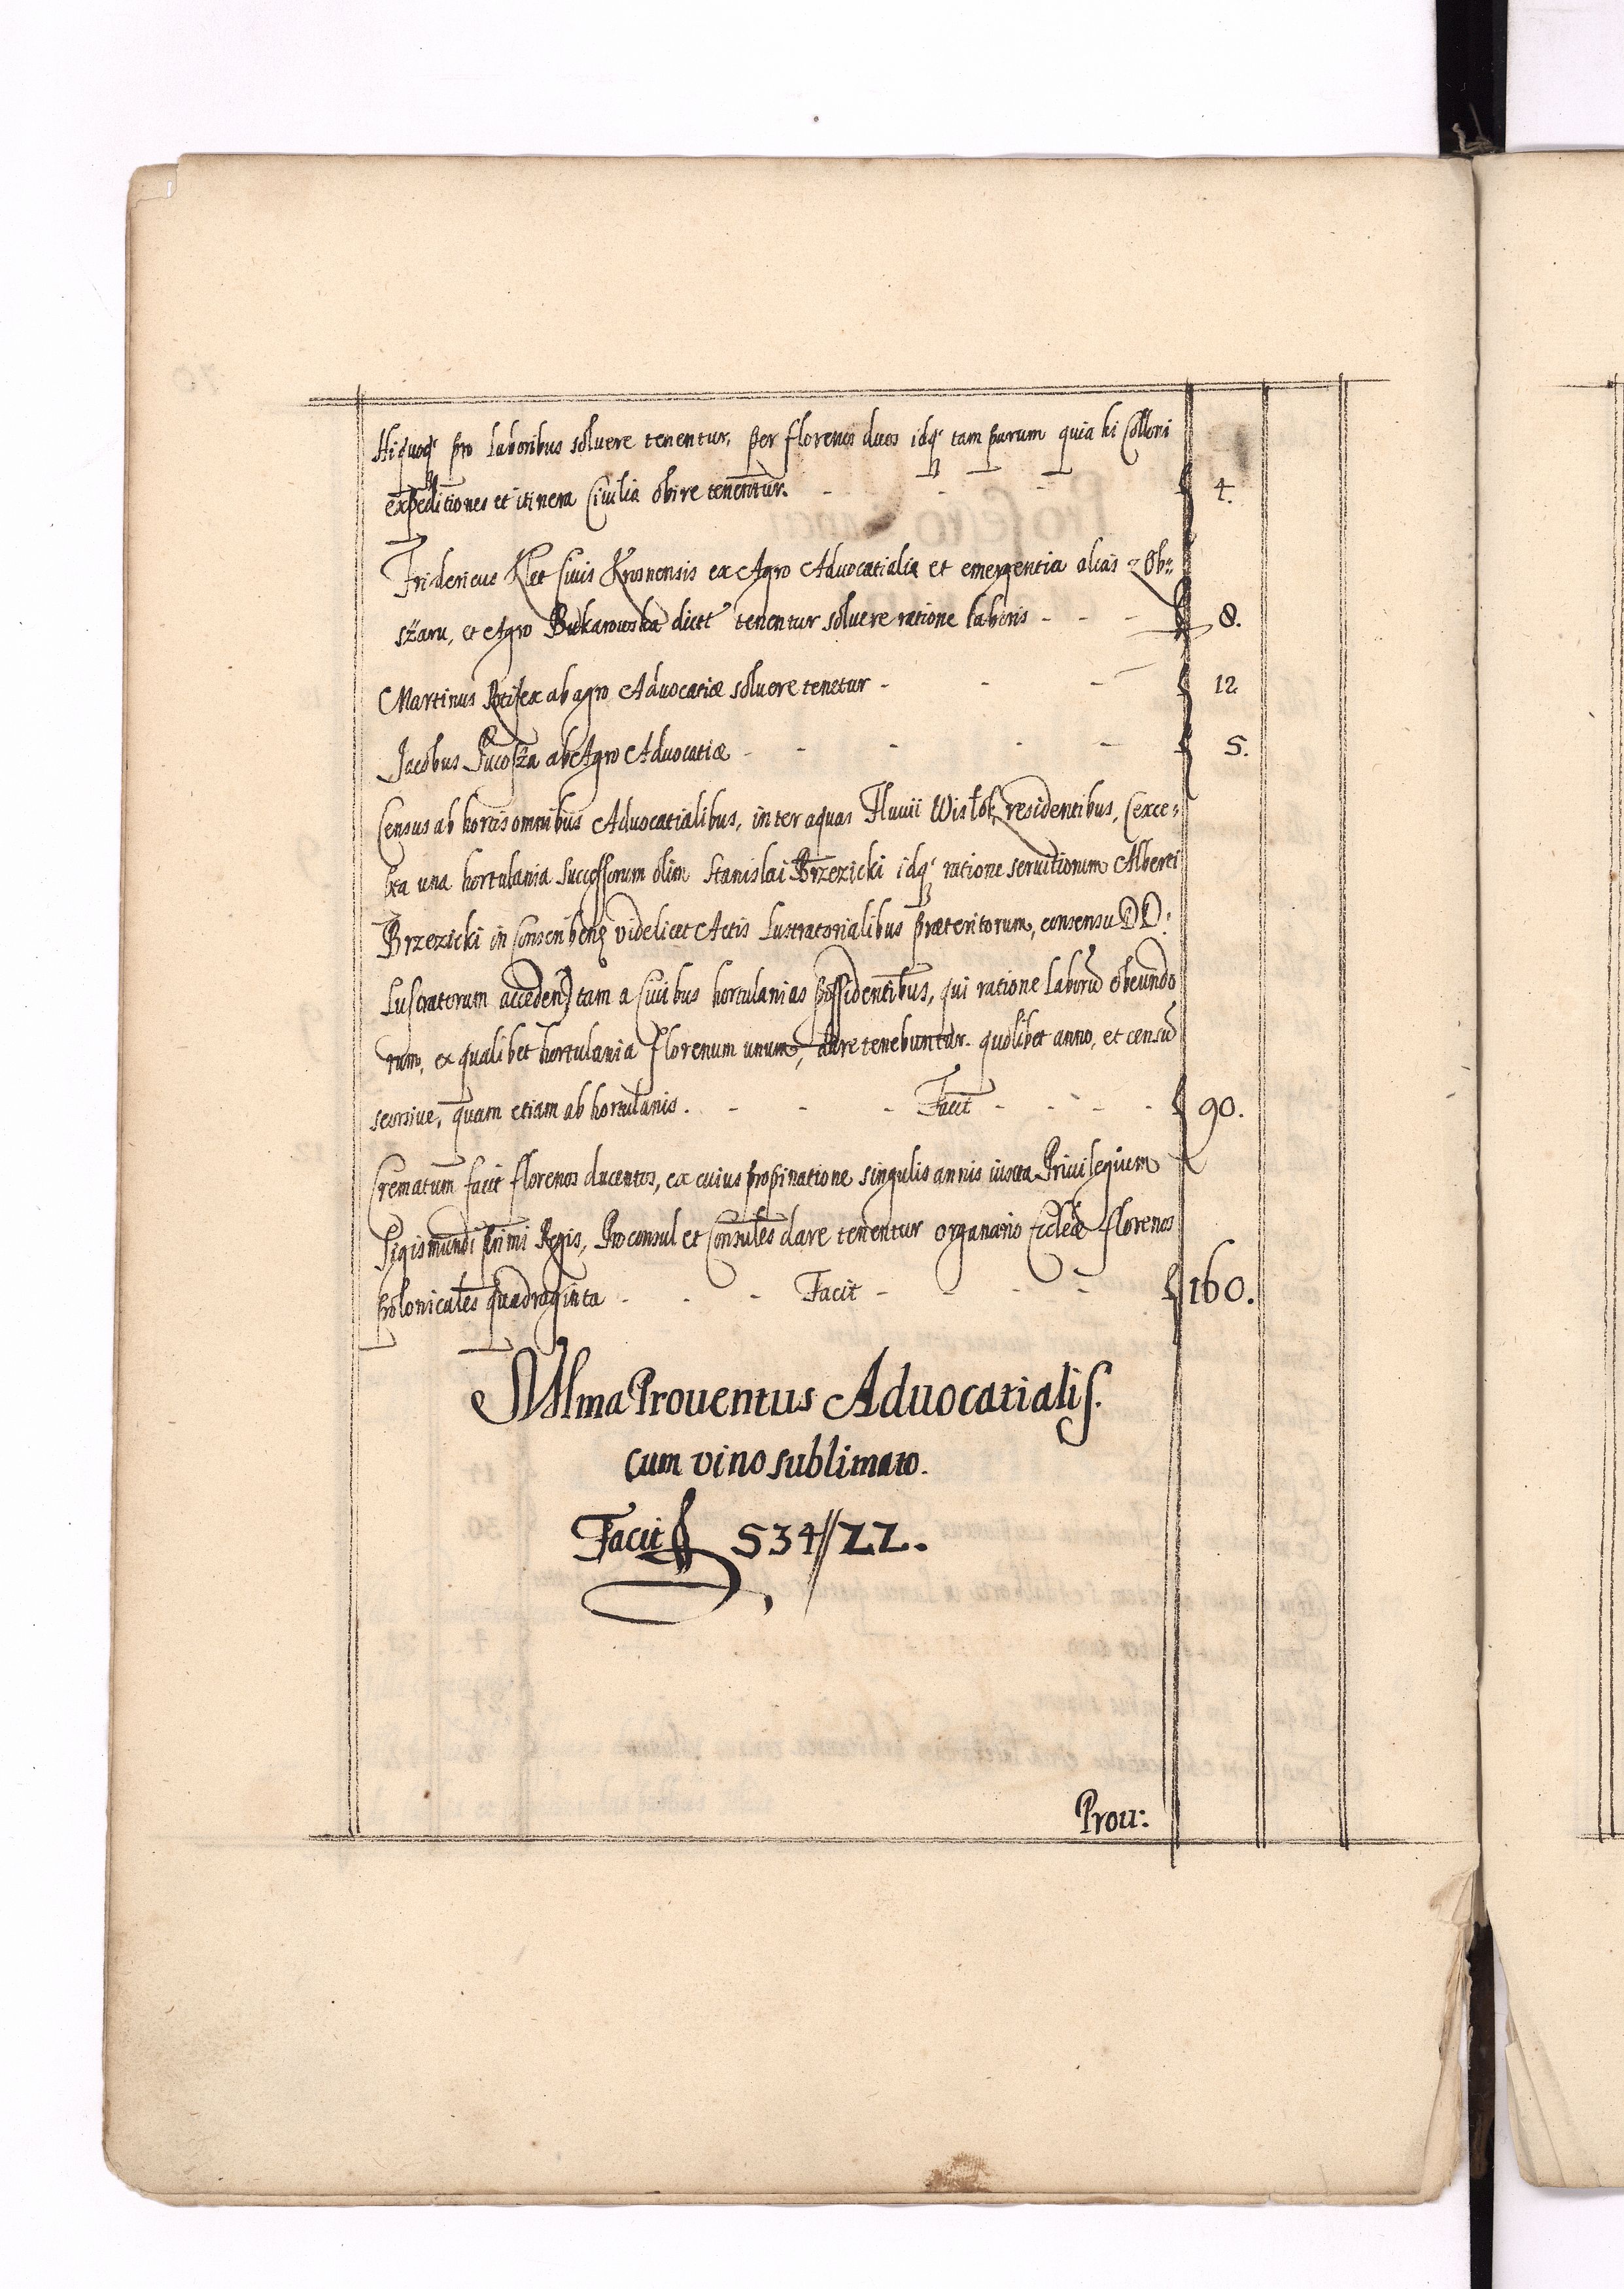 Hi quoq₃ pro laboribus soluere tenentur, per florenos duos idq₃ tam parum quia hi Colloni
expeditiones et itinera Ciuilia obire tenentur. - - - 4.
Fridericus Klet Ciuis Krosnensis ex Agro Aduocatialia et emergentia alias z Ob=
szaru, et Agro Bukarowska dict tenentur soluere ratione laboris - - - 8.
Martinus Potifex ab agro Aduocatiæ soluere tenetur - - - 12
Jacobus ab Agro Aduocatiæ - - - - - 5.
Census ab hortis omnibus Aduocatialibus, inter aquas Fluuii Wisłok residentibus, (exce=
pta una hortulania Successorum olim Stanislai Brzezicki idq₃ ratione seruitiorum Alberti
Brzezicki in videlicet Actis Lustratorialibus præteritorum, consensu DD:
Lustratorum acceden) tam a Ciuibus hortulanias possidentibus, qui ratione laborū obeundo
rum, ex qualibet hortulania florenum unum, dare tenebuntur. quolibet anno, et censū
seorsiue, quam etiam ab hortulanis. - - - Facit - - - - 90.
Crematum facit florenos ducentos, ex cuius propinatione singulis annis iuxta Priuilegium
Sigismundi primi Regis, Proconsul et Consules dare tenentur organario Ecclæ florenos
polonicales quadraginta - - - Facit - - - 160.
Suma Prouentus Aduocatialis.
cum vino sublimato.
Facit f 534//22.
Prou: